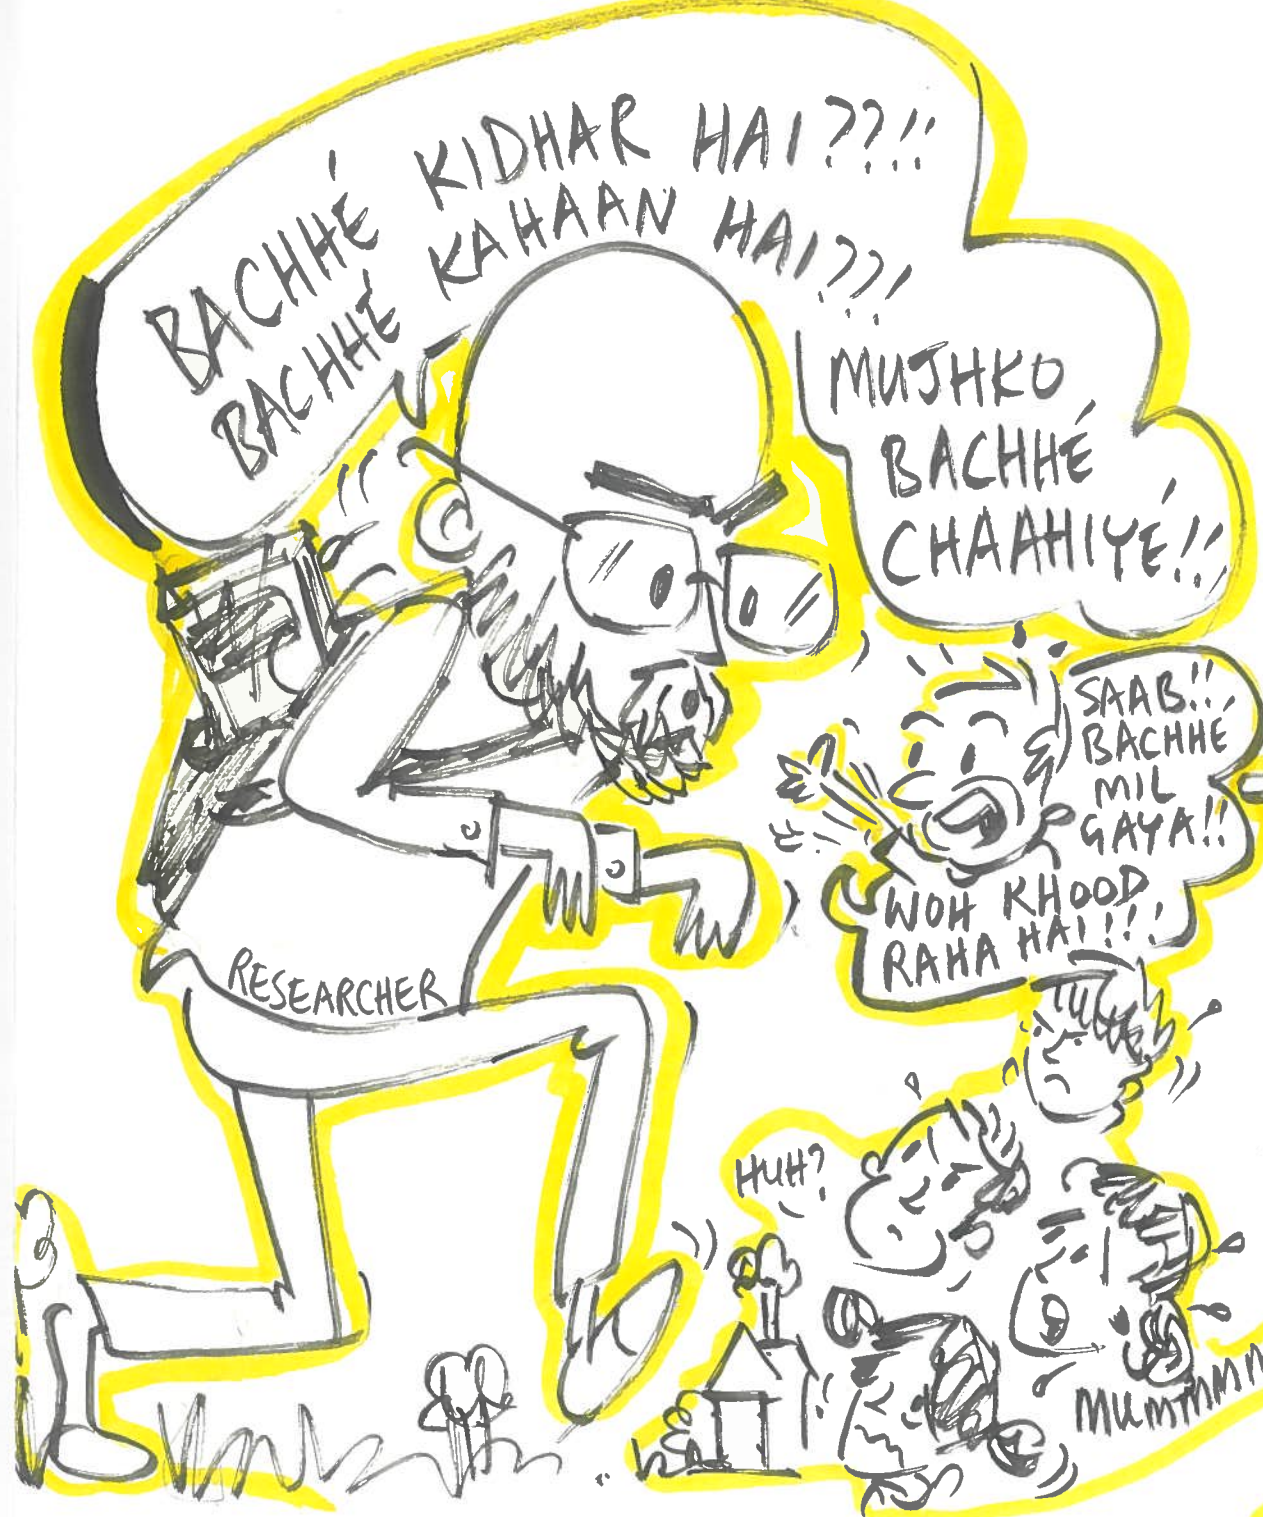 BACHHÉ KIDHAR HAI??!!
BACHHÉ KAHAAN HAI??!
MUJHKO
BACHHÉ
CHAAHIYÉ!!
SAAB!!
BACHHÉ
MIL
GAYA!!
WOH KHOOD
RAHA HAI!!!
RESEARCHER
HUH?
MUMMMM